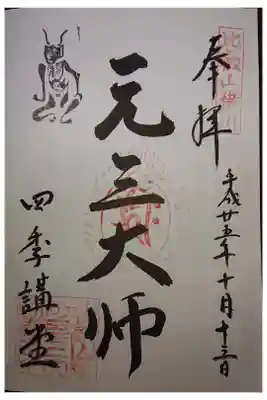 奉拝
平成廿五年十月十三日
元三大師
四季講堂